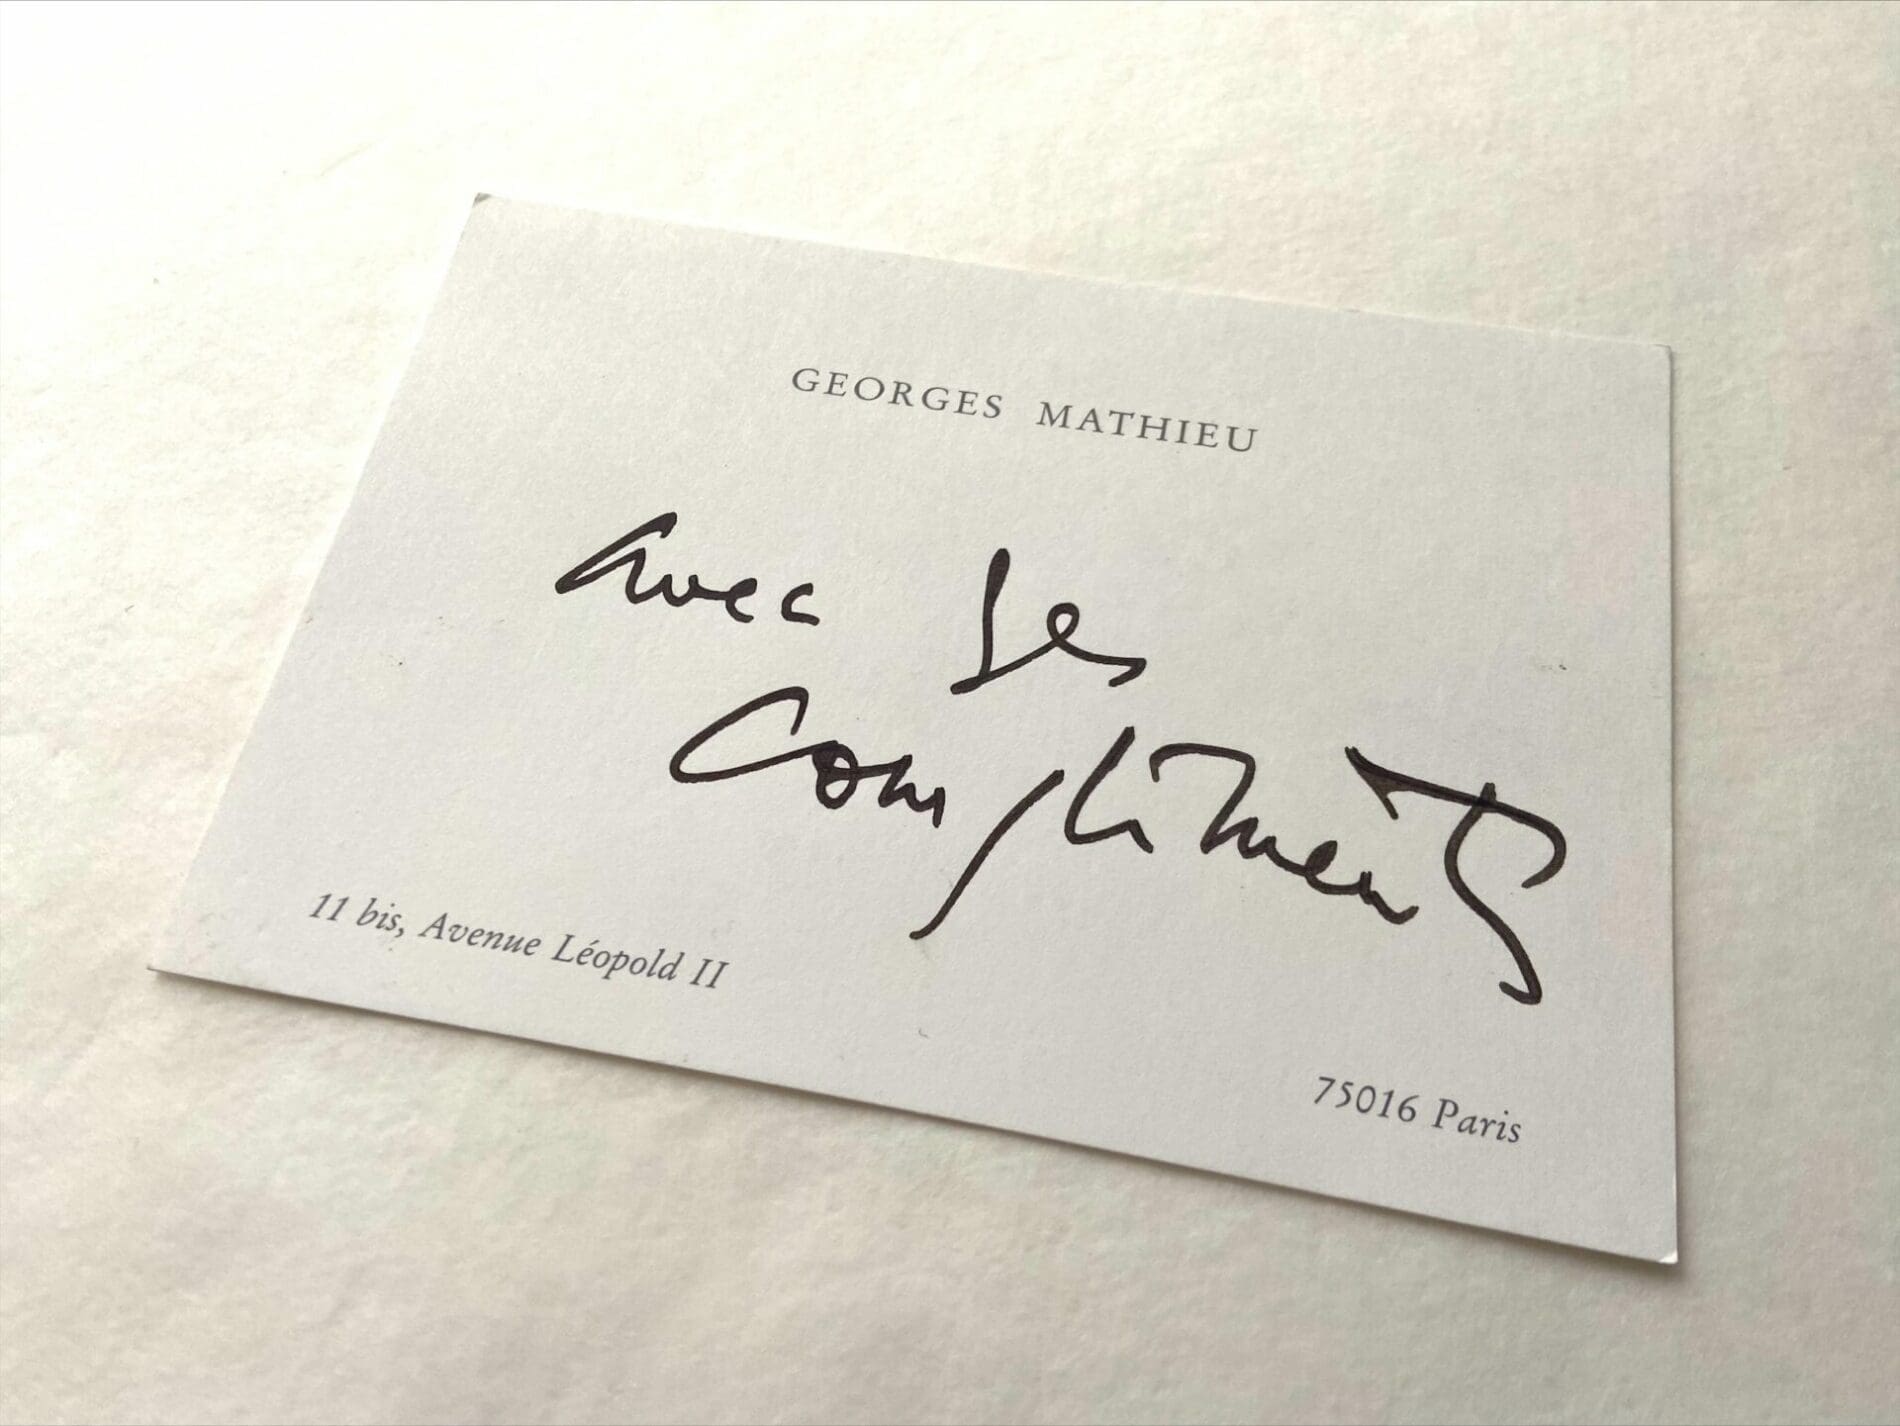 GEORGES MATHIEU
avec ses
compliments
11 bis, Avenue Léopold II
75016 Paris